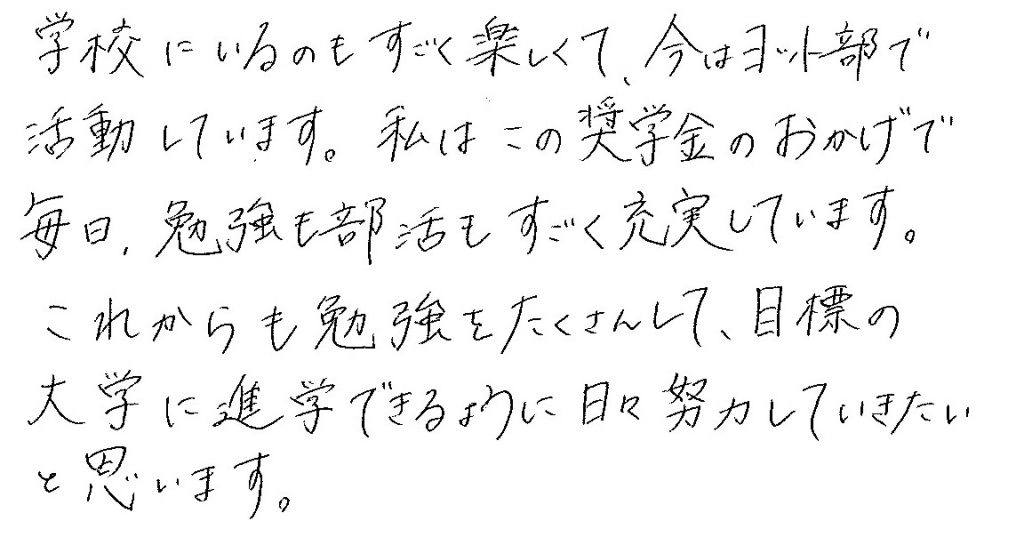 学校にいるのもすごく楽しくて、今はヨット部で
活動しています。私はこの奨学金のおかげで
毎日、勉強も部活もすごく充実しています。
これからも勉強をたくさんして、目標の
大学に進学できるように日々努力していきたい
と思います。